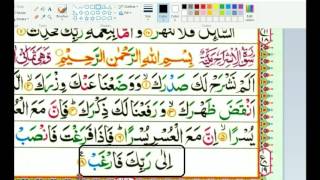 السَّآئِلَ فَلَا تَنْهَرْ وَاَمَّا بِنِعْمَةِ رَبِّكَ فَحَدِّثْ
بِسْمِ اللّٰهِ الرَّحْمٰنِ الرَّحِيْمِ
اَلَمْ نَشْرَحْ لَكَ صَدْرَكَ وَوَضَعْنَا عَنْكَ وِزْرَكَ الَّذِىْٓ
اَنْقَضَ ظَهْرَكَ وَرَفَعْنَا لَكَ ذِكْرَكَ فَاِنَّ مَعَ الْعُسْرِ
يُسْرًا اِنَّ مَعَ الْعُسْرِ يُسْرًا فَاِذَا فَرَغْتَ فَانْصَبْ وَ
اِلٰى رَبِّكَ فَارْغَبْ